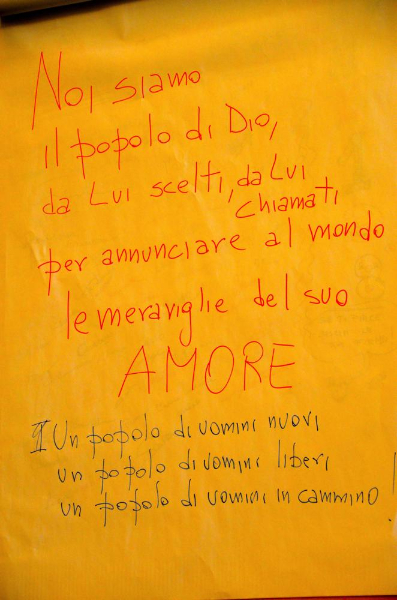 Noi siamo
il popolo di Dio,
da Lui scelti, da Lui
chiamati
per annunciare al mondo
le meraviglie del suo
AMORE
II Un popolo di uomini nuovi
un popolo di uomini liberi
un popolo di uomini in cammino